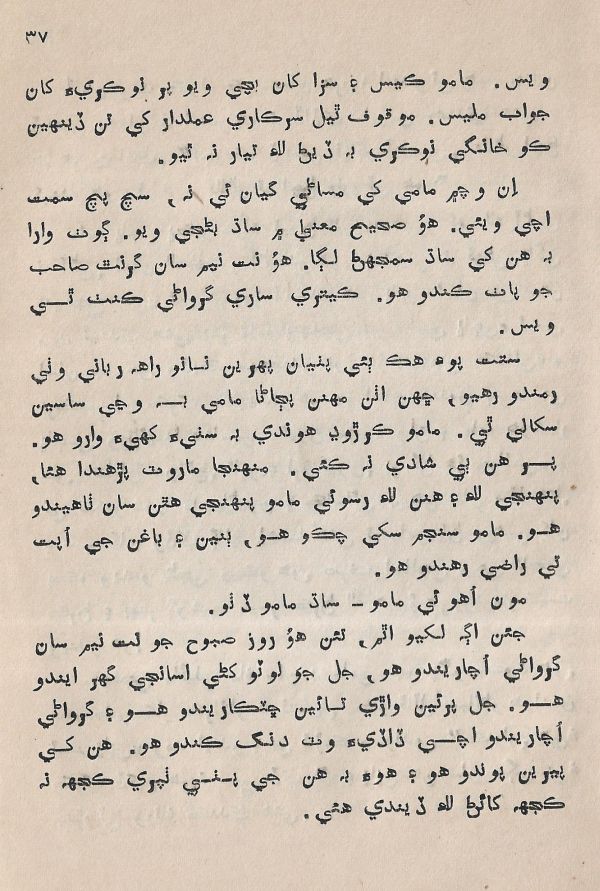 ٣٧
ويس. مامو ڪيس ۽ سزا کان بچي ويو پر نوڪريءَ کان
جواب مليس. موقوف ٿيل سرڪاري عملدار کي ٽن ڏينهين
ڪو خانگي نوڪري به ڏيڻ لاءِ تيار نه ٿيو.
اِن وچ ۾ مامي کي مساڻي گيان ٿي نه, سچ پچ سمت
اچي ويئي. هوُ صحيح معنيٰ ۾ ساڌ بڻجي ويو. ڳوٺ وارا
به هن کي ساڌ سمجهڻ لڳا. هوُ نت نيم سان گرنٿ صاحب
جو پاٺ ڪندو هو. ڪيتري ساري گرواڻي ڪنٺ ٿي
ويس.
ستت پوءِ هڪ ٻئي پٺيان پهرين ناناو راهه رباني وٺي
رمندو رهيو, ڇهن اٺن مهنن پڄاڻا مامي به وڃي ساسين
سکالي ٿي. مامو ڪرڙوڍ هوندي به سٺيءَ کهيءَ وارو هو.
پر هن ٻي شادي نه ڪئي. منهنجا ماروٽ پڙهندا هئا,
پنهنجي لاءِ ۽ هنن لاءِ رسوئي مامو پنهنجي هٿن سان ٺاهيندو
هو. مامو سنجم سکي چڪو هو, ٻنين ۽ باغن جي اُپت
تي راضي رهندو هو.
مون اُهو ئي مامو - ساڌ مامو ڏٺو.
جئن اڳ لکيو اٿم, تئن هوُ روز صبوح جو نت نيم سان
گرواڻي اُچاريندو هو, جل جو لوٽو کڻي اسانجي گهر ايندو
هو. جل پرئين واڙي تائين ڇٽڪاريندو هو ۽ گرواڻي
اُچاريندو اچي ڏاڏيءَ وٽ دنگ ڪندو هو. هن کي
پيرين پوندو هو ۽ هوءَ به هن جي پٺي ٺپري ڪجهه نه
ڪجهه کائڻ لاءِ ڏيندي هئي.